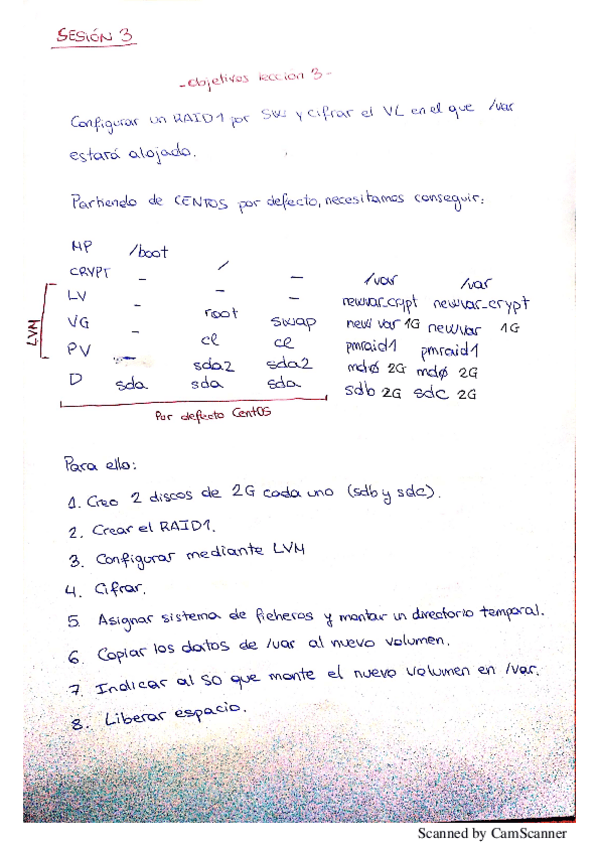 SESIÓN 3
- Objetivos lección 3 -
Configurar un RAID1 por SW y cifrar el VL en el que /var
estará alojado.
Partiendo de CENTOS por defecto, necesitamos conseguir:
MP /boot / — /var /var
CRYPT — — — newvar_crypt newvar_crypt
LV — root swap newvar 1G newvar 1G
VG — cl cl pmraid1 pmraid1
PV — sda2 sda2 md0 2G md0 2G
D sda sda sda sdb 2G sdc 2G
LVM
Por defecto CentOS
Para ello:
1. Creo 2 discos de 2G cada uno (sdb y sdc).
2. Crear el RAID1.
3. Configurar mediante LVM
4. Cifrar.
5 Asignar sistema de ficheros y montar un directorio temporal.
6. Copiar los datos de /var al nuevo volumen.
7. Indicar al SO que monte el nuevo volumen en /var.
8. Liberar espacio.
Scanned by CamScanner